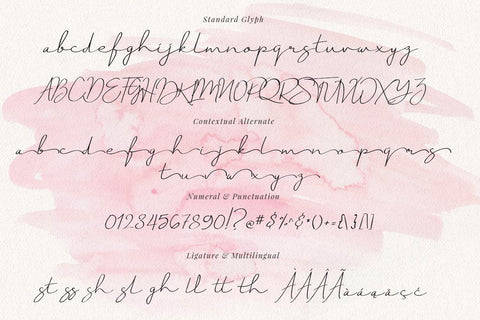 Standard Glyph
abcdefghijklmnopqrstuvwxyz
ABCDEFGHIJKLMNOPQRSTUVWXYZ
Contextual Alternate
a b c d e f g h i j k l m n o p q r s
t u v w x y z
Numeral & Punctuation
01234567890!?@#$%^&*()+={\}[/]
Ligature & Multilingual
st ss sh sl gh ll tt th ÀÁÂÃàáąâşč